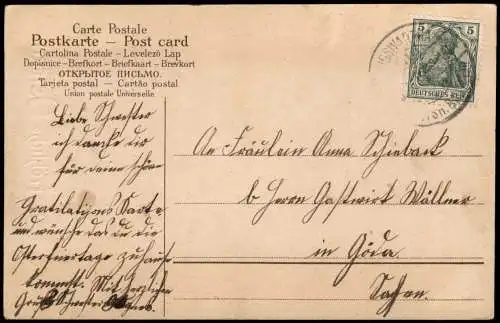 Carte Postale
Postkarte – Post card
Cartolina Postale – Levelező Lap
Dopisnice – Brefkort – Briefkaart – Brevkort
ОТКРЫТОЕ ПИСЬМО.
Tarjeta postal — Cartão postal
Union postale Universelle.
5 5
DEUTSCHES REICH
Liebe Schwester
ich danke dir
für deine schöne
Gratilations Karte
und wünsche das du die
Osterfeiertage zuhause
kommst. Mit herzlichen
Gruß Schwester Agnes.
An Fräulein Anna Schieback
b Herrn Gastwirt Wällner
in Göda.
Sachsen.